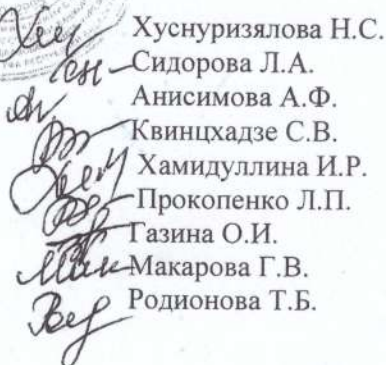 Хуснуризялова Н.С.
Сидорова Л.А.
Анисимова А.Ф.
Квинцхадзе С.В.
Хамидуллина И.Р.
Прокопенко Л.П.
Газина О.И.
Макарова Г.В.
Родионова Т.Б.